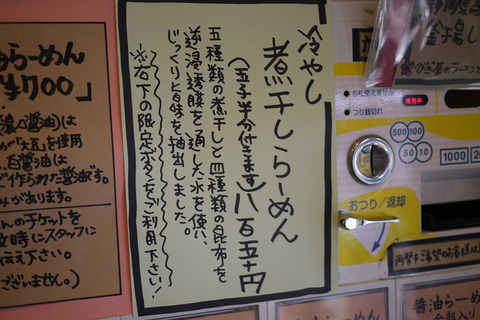 冷やし
煮干しらーめん
(玉子半分付きます)八百五十円
五種類の煮干しと四種類の昆布を
逆浸透膜を通した水を使い、
じっくりと旨味を抽出しました。
※右下の限定ボタンをご利用下さい!
らーめん
¥700」
醤油)は
を使用
白醤油は
作られた醤油です。
があります。
のチケットを
時にスタッフに
伝え下さい。
ございません。)
お札使えません
つり銭切れ
発売中
500 100
50 10
1000
おつり/返却
両替をご希望のお客様は
醤油らーめん